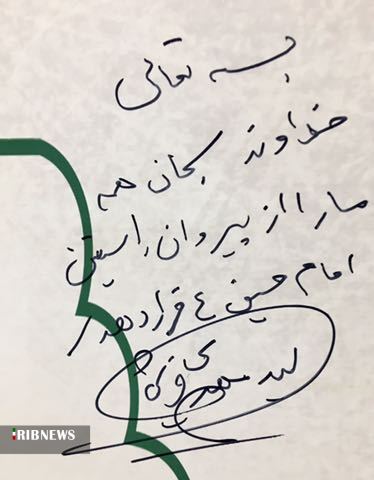 بسمه تعالی
خداوند سبحان همه
ما را از پیروان راستین
امام حسین ع قرار دهد
سید
IRIBNEWS